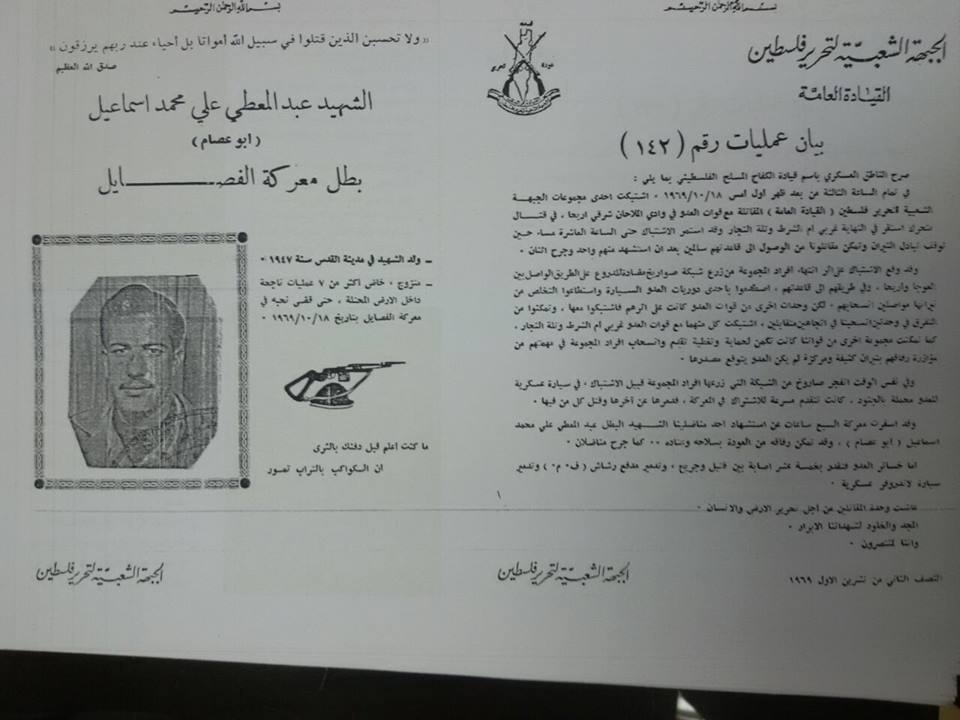 بسم الله الرحمن الرحيم
الجبهة الشعبية لتحرير فلسطين
القيادة العامة
بيان عمليات رقم ( ١٤٢ )
صرح الناطق العسكري باسم قيادة الكفاح المسلح الفلسطيني بما يلي :
في تمام الساعة الثالثة من بعد ظهر اول امس ١٩٦٩/١٠/١٨ ، اشتبكت احدى مجموعات الجبهة
الشعبية لتحرير فلسطين ( القيادة العامة ) المقاتلة مع قوات العدو في وادي الملاحان شرقي اريحا ، في قتال
متحرك استقر في النهاية غربي ام الشرط وتلة النجار وقد استمر الاشتباك حتى الساعة العاشرة مساء حين
توقف تبادل النيران وتمكن مقاتلونا من الوصول الى قاعدتهم سالمين بعد ان استشهد منهم واحد وجرح اثنان .
وقد وقع الاشتباك على اثر انتهاء افراد المجموعة من زرع شبكة صواريخ مضادة للدروع على الطريق الواصل بين
العوجا واريحا ، وفي طريقهم الى قاعدتهم ، اصطدموا باحدى دوريات العدو السيارة واستطاعوا التخلص من
نيرانها مواصلين انسحابهم . لكن وحدات اخرى من قوات العدو كانت على اثرهم فاشتبكوا معها ، وتمكنوا من
التفرق في وحدتين انسحبتا في اتجاهين متقابلين ، اشتبكت كل منهما مع قوات العدو غربي ام الشرط وتلة النجار ،
كما تمكنت مجموعة اخرى من قواتنا كانت تكمن لحماية وتغطية تقدم وانسحاب افراد المجموعة في مهمتهم من
مؤازرة رفاقهم بنيران كثيفة ومركزة لم يكن العدو يتوقع مصدرها .
وفي نفس الوقت انفجر صاروخ من الشبكة التي زرعها افراد المجموعة قبيل الاشتباك ، في سيارة عسكرية
للعدو محملة بالجنود ، كانت تتقدم مسرعة للاشتراك في المعركة ، فدمرها عن آخرها وقتل كل من فيها .
وقد اسفرت معركة السبع ساعات عن استشهاد احد مناضلينا الشهيد البطل عبد المعطي علي محمد
اسماعيل ( ابو عصام ) ، وقد تمكن رفاقه من العودة بسلاحه وعتاده ٠٠ كما جرح مناضلان .
اما خسائر العدو فتقدر بخمسة عشر اصابة بين قتيل وجريح ، وتدمير مدفع رشاش ( ف٠ م٠ ) وتدمير
سيارة لاندروفر عسكرية .
عاشت وحدة المقاتلين من أجل تحرير الارض والانسان .
المجد والخلود لشهدائنا الابرار .
واننا لمنتصرون .
النصف الثاني من تشرين الاول ١٩٦٩
الجبهة الشعبية لتحرير فلسطين
١
بسم الله الرحمن الرحيم
« ولا تحسبن الذين قتلوا في سبيل الله أمواتا بل أحياء عند ربهم يرزقون »
صدق الله العظيم
الشهيد عبد المعطي علي محمد اسماعيل
( ابو عصام )
بطل معركة الفصــــــايل
ــ ولد الشهيد في مدينة القدس سنة ١٩٤٧ .
ــ متزوج ، خاض أكثر من ٧ عمليات ناجحة
داخل الارض المحتلة ، حتى قضى نحبه في
معركة الفصايل بتاريخ ١٩٦٩/١٠/١٨ .
ما كنت اعلم قبل دفنك بالثرى
ان الكواكب بالتراب تغور
الجبهة الشعبية لتحرير فلسطين